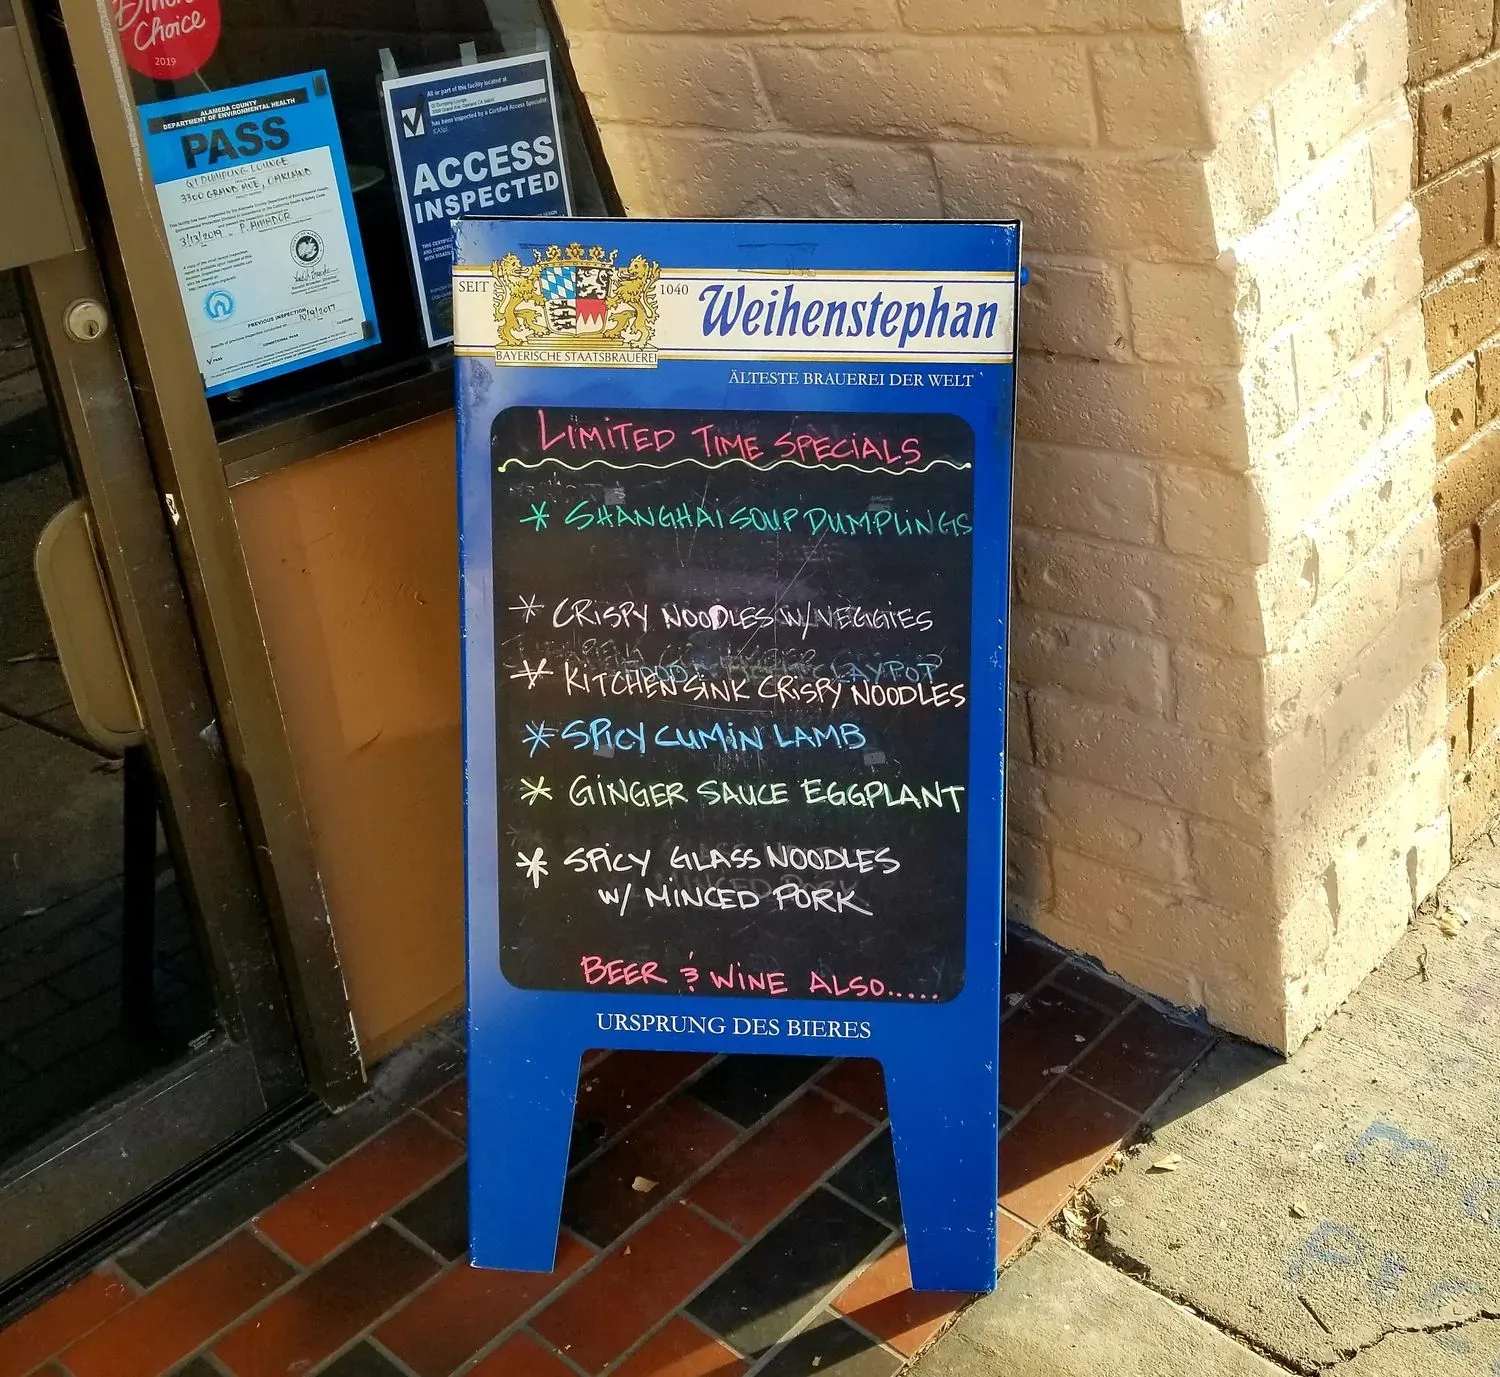 Diners'
Choice
2019
ALAMEDA COUNTY
DEPARTMENT OF ENVIRONMENTAL HEALTH
PASS
QI DUMPLING LOUNGE
3300 GRAND AVE, OAKLAND
3/13/2019 P. AMADOR
PREVIOUS INSPECTION 10/9/2017
CONDITIONAL PASS
CLOSURE
PASS
All or part of this facility located at
Qi Dumpling Lounge
3300 Grand Ave, Oakland CA
has been inspected by a Certified Access Specialist
(CASp)
ACCESS
INSPECTED
SEIT 1040 Weihenstephan
BAYERISCHE STAATSBRAUEREI
ÄLTESTE BRAUEREI DER WELT
LIMITED TIME SPECIALS
* SHANGHAI SOUP DUMPLINGS
* CRISPY NOODLES W/ VEGGIES
CLAYPOT
* KITCHEN SINK CRISPY NOODLES
* SPICY CUMIN LAMB
* GINGER SAUCE EGGPLANT
* SPICY GLASS NOODLES
W/ MINCED PORK
BEER & WINE ALSO.....
URSPRUNG DES BIERES